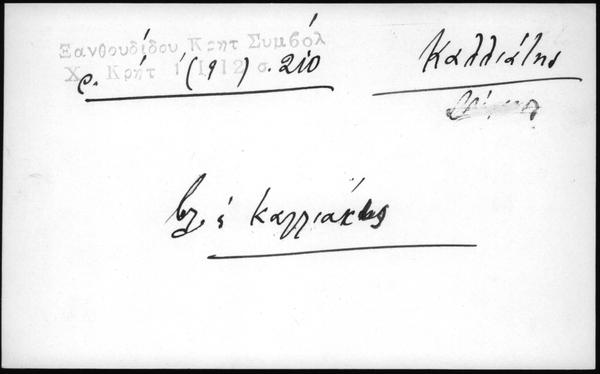 Ξανθουδίδου Κρητ Συμβόλ
Χ. Κρήτ 1 (1912) σ. 210
Καλλιάτης
βλ. Καλλιάκης